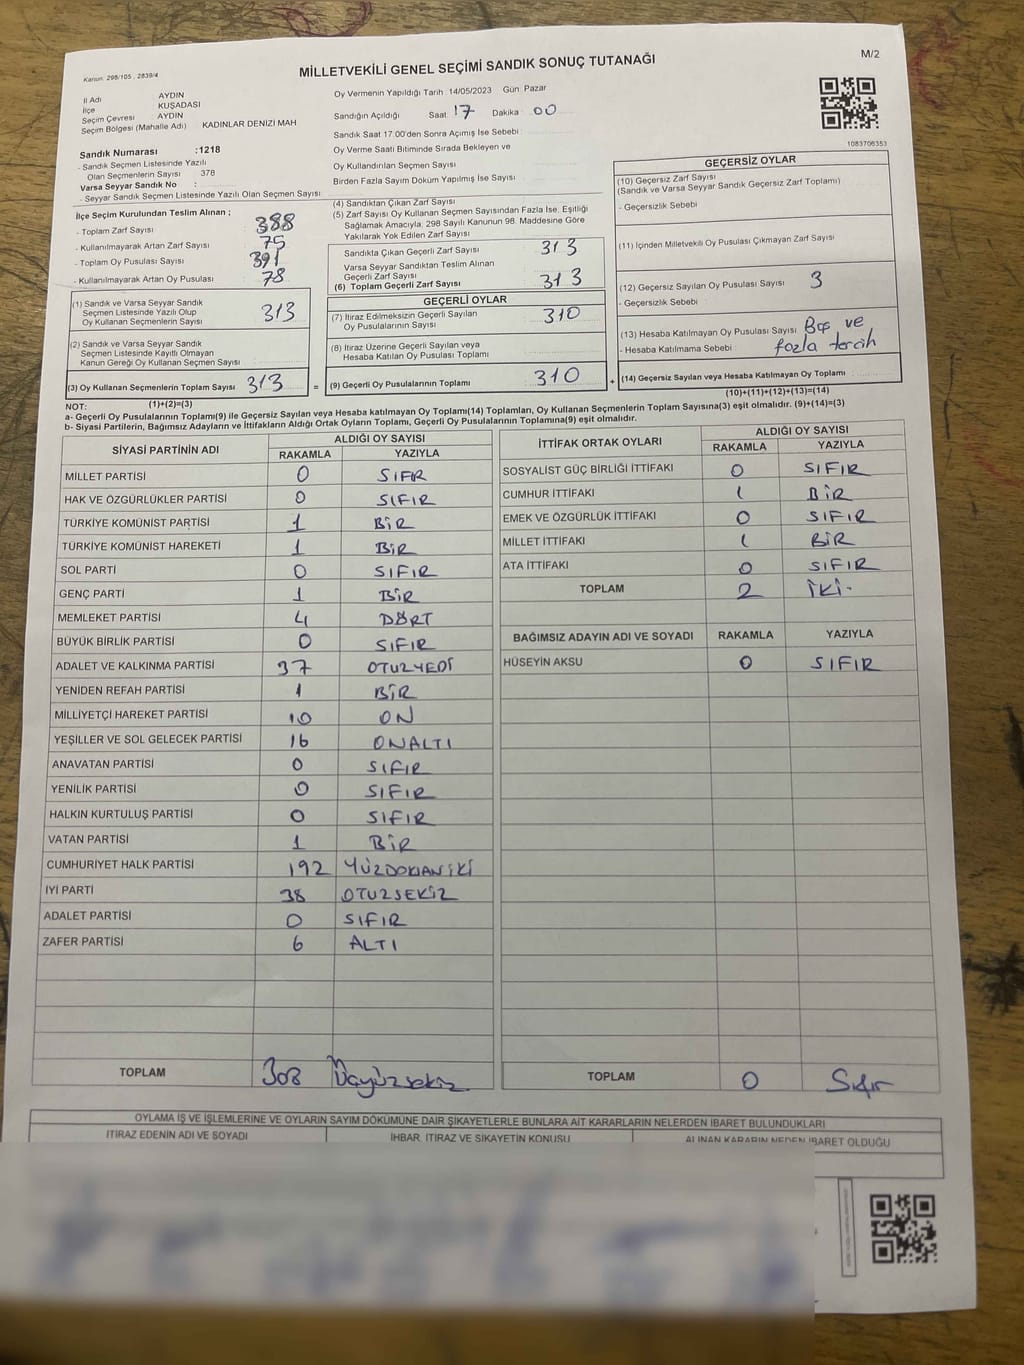 M/2
Kanun: 298/105 , 2839/4
MİLLETVEKİLİ GENEL SEÇİMİ SANDIK SONUÇ TUTANAĞI
İl Adı AYDIN
İlçe KUŞADASI
Seçim Çevresi AYDIN
Seçim Bölgesi (Mahalle Adı) KADINLAR DENİZİ MAH
Sandık Numarası :1218
- Sandık Seçmen Listesinde Yazılı
Olan Seçmenlerin Sayısı 378
Varsa Seyyar Sandık No :
- Seyyar Sandık Seçmen Listesinde Yazılı Olan Seçmen Sayısı
İlçe Seçim Kurulundan Teslim Alınan ;
- Toplam Zarf Sayısı 388
- Kullanılmayarak Artan Zarf Sayısı 75
- Toplam Oy Pusulası Sayısı 391
- Kullanılmayarak Artan Oy Pusulası 78
(1) Sandık ve Varsa Seyyar Sandık
Seçmen Listesinde Yazılı Olup
Oy Kullanan Seçmenlerin Sayısı 313
(2) Sandık ve Varsa Seyyar Sandık
Seçmen Listesinde Kayıtlı Olmayan
Kanun Gereği Oy Kullanan Seçmen Sayısı
(3) Oy Kullanan Seçmenlerin Toplam Sayısı 313 =
(1)+(2)=(3)
Oy Vermenin Yapıldığı Tarih :14/05/2023 Gün: Pazar
Sandığın Açıldığı Saat: 17 Dakika : 00
Sandık Saat 17.00'den Sonra Açımış İse Sebebi :
Oy Verme Saati Bitiminde Sırada Bekleyen ve
Oy Kullandırılan Seçmen Sayısı :
Birden Fazla Sayım Döküm Yapılmış İse Sayısı :
(4) Sandıktan Çıkan Zarf Sayısı
(5) Zarf Sayısı Oy Kullanan Seçmen Sayısından Fazla İse, Eşitliği
Sağlamak Amacıyla, 298 Sayılı Kanunun 98. Maddesine Göre
Yakılarak Yok Edilen Zarf Sayısı
Sandıkta Çıkan Geçerli Zarf Sayısı 313
Varsa Seyyar Sandıktan Teslim Alınan
Geçerli Zarf Sayısı
(6) Toplam Geçerli Zarf Sayısı 313
GEÇERLİ OYLAR
(7) İtiraz Edilmeksizin Geçerli Sayılan
Oy Pusulalarının Sayısı 310
(8) İtiraz Üzerine Geçerli Sayılan veya
Hesaba Katılan Oy Pusulası Toplamı
(9) Geçerli Oy Pusulalarının Toplamı 310 +
1083706353
GEÇERSİZ OYLAR
(10) Geçersiz Zarf Sayısı
(Sandık ve Varsa Seyyar Sandık Geçersiz Zarf Toplamı)
- Geçersizlik Sebebi
(11) İçinden Milletvekili Oy Pusulası Çıkmayan Zarf Sayısı
(12) Geçersiz Sayılan Oy Pusulası Sayısı 3
- Geçersizlik Sebebi :
(13) Hesaba Katılmayan Oy Pusulası Sayısı Boş ve
- Hesaba Katılmama Sebebi : fazla tercih
(14) Geçersiz Sayılan veya Hesaba Katılmayan Oy Toplamı :
(10)+(11)+(12)+(13)=(14)
NOT:
a- Geçerli Oy Pusulalarının Toplamı(9) ile Geçersiz Sayılan veya Hesaba katılmayan Oy Toplamı(14) Toplamları, Oy Kullanan Seçmenlerin Toplam Sayısına(3) eşit olmalıdır. (9)+(14)=(3)
b- Siyasi Partilerin, Bağımsız Adayların ve İttifakların Aldığı Ortak Oyların Toplamı, Geçerli Oy Pusulalarının Toplamına(9) eşit olmalıdır.
SİYASİ PARTİNİN ADI ALDIĞI OY SAYISI
RAKAMLA YAZIYLA
MİLLET PARTİSİ 0 SIFIR
HAK VE ÖZGÜRLÜKLER PARTİSİ 0 SIFIR
TÜRKİYE KOMÜNİST PARTİSİ 1 BİR
TÜRKİYE KOMÜNİST HAREKETİ 1 BİR
SOL PARTİ 0 SIFIR
GENÇ PARTİ 1 BİR
MEMLEKET PARTİSİ 4 DÖRT
BÜYÜK BİRLİK PARTİSİ 0 SIFIR
ADALET VE KALKINMA PARTİSİ 37 OTUZYEDİ
YENİDEN REFAH PARTİSİ 1 BİR
MİLLİYETÇİ HAREKET PARTİSİ 10 ON
YEŞİLLER VE SOL GELECEK PARTİSİ 16 ONALTI
ANAVATAN PARTİSİ 0 SIFIR
YENİLİK PARTİSİ 0 SIFIR
HALKIN KURTULUŞ PARTİSİ 0 SIFIR
VATAN PARTİSİ 1 BİR
CUMHURİYET HALK PARTİSİ 192 YÜZDOKSANİKİ
İYİ PARTİ 38 OTUZSEKİZ
ADALET PARTİSİ 0 SIFIR
ZAFER PARTİSİ 6 ALTI
TOPLAM 308 Üçyüzsekiz
İTTİFAK ORTAK OYLARI ALDIĞI OY SAYISI
RAKAMLA YAZIYLA
SOSYALİST GÜÇ BİRLİĞİ İTTİFAKI 0 SIFIR
CUMHUR İTTİFAKI 1 BİR
EMEK VE ÖZGÜRLÜK İTTİFAKI 0 SIFIR
MİLLET İTTİFAKI 1 BİR
ATA İTTİFAKI 0 SIFIR
TOPLAM 2 İKİ.
BAĞIMSIZ ADAYIN ADI VE SOYADI RAKAMLA YAZIYLA
HÜSEYİN AKSU 0 SIFIR
TOPLAM 0 Sıfır
OYLAMA İŞ VE İŞLEMLERİNE VE OYLARIN SAYIM DÖKÜMÜNE DAİR ŞİKAYETLERLE BUNLARA AİT KARARLARIN NELERDEN İBARET BULUNDUKLARI
İTİRAZ EDENİN ADI VE SOYADI İHBAR, İTİRAZ VE ŞİKAYETİN KONUSU ALINAN KARARIN NEDEN İBARET OLDUĞU